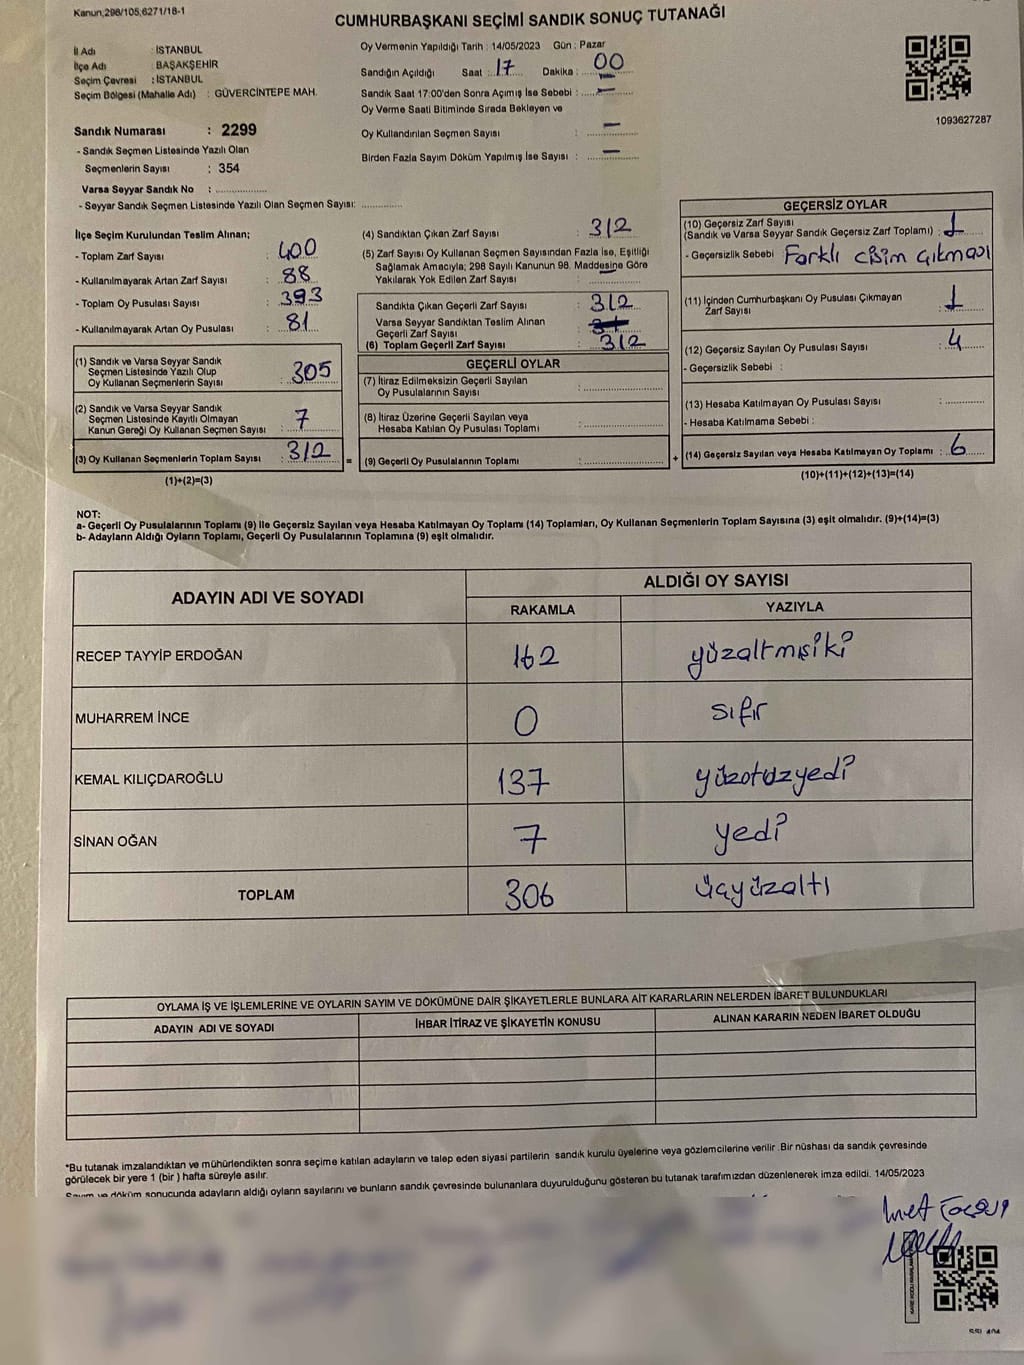 Kanun;298/105;6271/18-1
CUMHURBAŞKANI SEÇİMİ SANDIK SONUÇ TUTANAĞI
İl Adı : İSTANBUL
İlçe Adı : BAŞAKŞEHİR
Seçim Çevresi : İSTANBUL
Seçim Bölgesi (Mahalle Adı) : GÜVERCİNTEPE MAH.
Sandık Numarası : 2299
- Sandık Seçmen Listesinde Yazılı Olan
Seçmenlerin Sayısı : 354
Varsa Seyyar Sandık No : ..................
- Seyyar Sandık Seçmen Listesinde Yazılı Olan Seçmen Sayısı: ..............
Oy Vermenin Yapıldığı Tarih : 14/05/2023 Gün : Pazar
Sandığın Açıldığı Saat : 17 Dakika : 00
Sandık Saat 17:00'den Sonra Açımış İse Sebebi : —
Oy Verme Saati Bitiminde Sırada Bekleyen ve
Oy Kullandırılan Seçmen Sayısı : —
Birden Fazla Sayım Döküm Yapılmış İse Sayısı : —
1093627287
İlçe Seçim Kurulundan Teslim Alınan;
- Toplam Zarf Sayısı : 400
- Kullanılmayarak Artan Zarf Sayısı : 88
- Toplam Oy Pusulası Sayısı : 393
- Kullanılmayarak Artan Oy Pusulası : 81
(1) Sandık ve Varsa Seyyar Sandık
Seçmen Listesinde Yazılı Olup
Oy Kullanan Seçmenlerin Sayısı : 305
(2) Sandık ve Varsa Seyyar Sandık
Seçmen Listesinde Kayıtlı Olmayan
Kanun Gereği Oy Kullanan Seçmen Sayısı : 7
(3) Oy Kullanan Seçmenlerin Toplam Sayısı : 312
(1)+(2)=(3)
(4) Sandıktan Çıkan Zarf Sayısı : 312
(5) Zarf Sayısı Oy Kullanan Seçmen Sayısından Fazla İse, Eşitliği
Sağlamak Amacıyla; 298 Sayılı Kanunun 98. Maddesine Göre
Yakılarak Yok Edilen Zarf Sayısı : ..............
Sandıkta Çıkan Geçerli Zarf Sayısı : 312
Varsa Seyyar Sandıktan Teslim Alınan
Geçerli Zarf Sayısı :
(6) Toplam Geçerli Zarf Sayısı : 312
GEÇERLİ OYLAR
(7) İtiraz Edilmeksizin Geçerli Sayılan
Oy Pusulalarının Sayısı : ..............
(8) İtiraz Üzerine Geçerli Sayılan veya
Hesaba Katılan Oy Pusulası Toplamı : ..............
= (9) Geçerli Oy Pusulalarının Toplamı : ..............
GEÇERSİZ OYLAR
(10) Geçersiz Zarf Sayısı
(Sandık ve Varsa Seyyar Sandık Geçersiz Zarf Toplamı) : 1
- Geçersizlik Sebebi : Farklı cisim çıkması
(11) İçinden Cumhurbaşkanı Oy Pusulası Çıkmayan
Zarf Sayısı : 1
(12) Geçersiz Sayılan Oy Pusulası Sayısı : 4
- Geçersizlik Sebebi :
(13) Hesaba Katılmayan Oy Pusulası Sayısı : ..............
- Hesaba Katılmama Sebebi :
+ (14) Geçersiz Sayılan veya Hesaba Katılmayan Oy Toplamı : 6
(10)+(11)+(12)+(13)=(14)
NOT:
a- Geçerli Oy Pusulalarının Toplamı (9) ile Geçersiz Sayılan veya Hesaba Katılmayan Oy Toplamı (14) Toplamları, Oy Kullanan Seçmenlerin Toplam Sayısına (3) eşit olmalıdır. (9)+(14)=(3)
b- Adayların Aldığı Oyların Toplamı, Geçerli Oy Pusulalarının Toplamına (9) eşit olmalıdır.
ADAYIN ADI VE SOYADI ALDIĞI OY SAYISI
RAKAMLA YAZIYLA
RECEP TAYYİP ERDOĞAN 162 yüzaltmışiki
MUHARREM İNCE 0 sıfır
KEMAL KILIÇDAROĞLU 137 yüzotuzyedi
SİNAN OĞAN 7 yedi
TOPLAM 306 üçyüzaltı
OYLAMA İŞ VE İŞLEMLERİNE VE OYLARIN SAYIM VE DÖKÜMÜNE DAİR ŞİKAYETLERLE BUNLARA AİT KARARLARIN NELERDEN İBARET BULUNDUKLARI
ADAYIN ADI VE SOYADI İHBAR İTİRAZ VE ŞİKAYETİN KONUSU ALINAN KARARIN NEDEN İBARET OLDUĞU
*Bu tutanak imzalandıktan ve mühürlendikten sonra seçime katılan adayların ve talep eden siyasi partilerin sandık kurulu üyelerine veya gözlemcilerine verilir. Bir nüshası da sandık çevresinde
görülecek bir yere 1 (bir) hafta süreyle asılır.
Sayım ve döküm sonucunda adayların aldığı oyların sayılarını ve bunların sandık çevresinde bulunanlara duyurulduğunu gösteren bu tutanak tarafımızdan düzenlenerek imza edildi. 14/05/2023